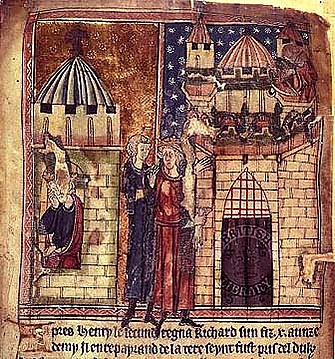 BRITISH
LIBRARY
Apres Henry le secund regna Richard sun fiz .x. aunz e
demy si en repayrand de la tere seynt fust pris del duk